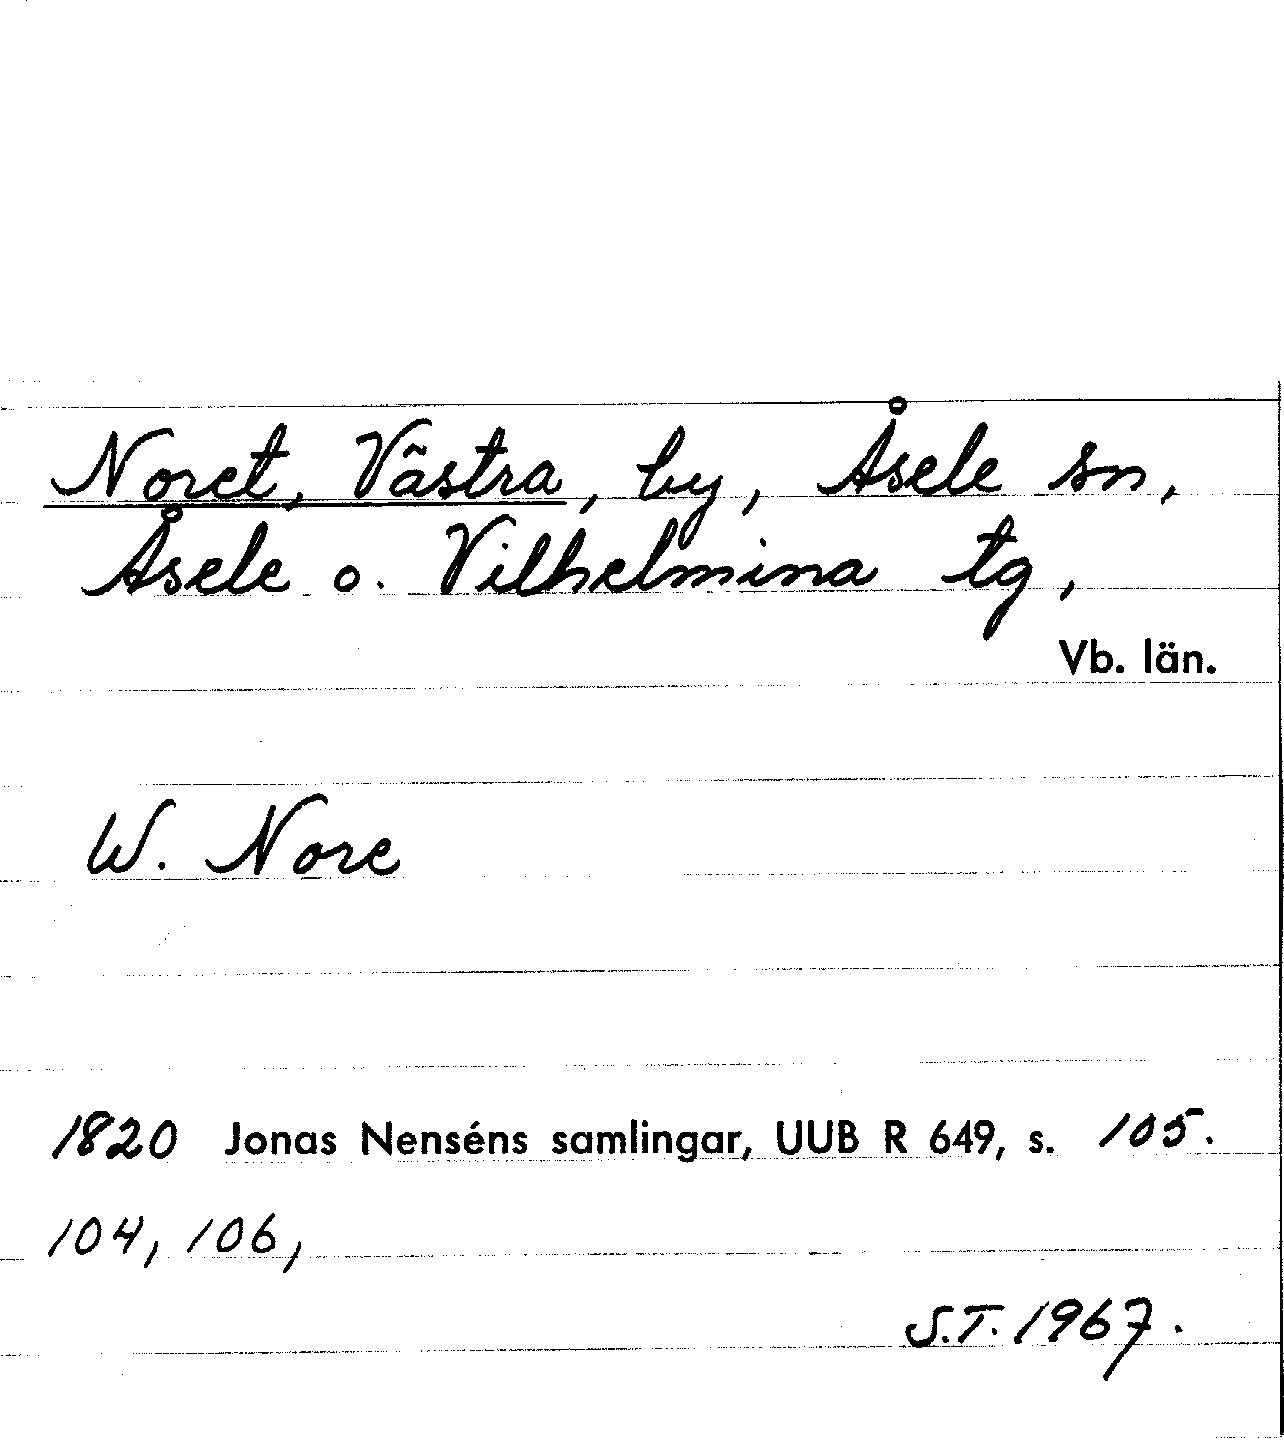 Noret, Västra, by, Åsele sn,
Åsele o. Vilhelmina tg,
Vb. län.
W. Nore
1820 Jonas Nenséns samlingar, UUB R 649, s. 105.
104, 106,
S.T. 1967.